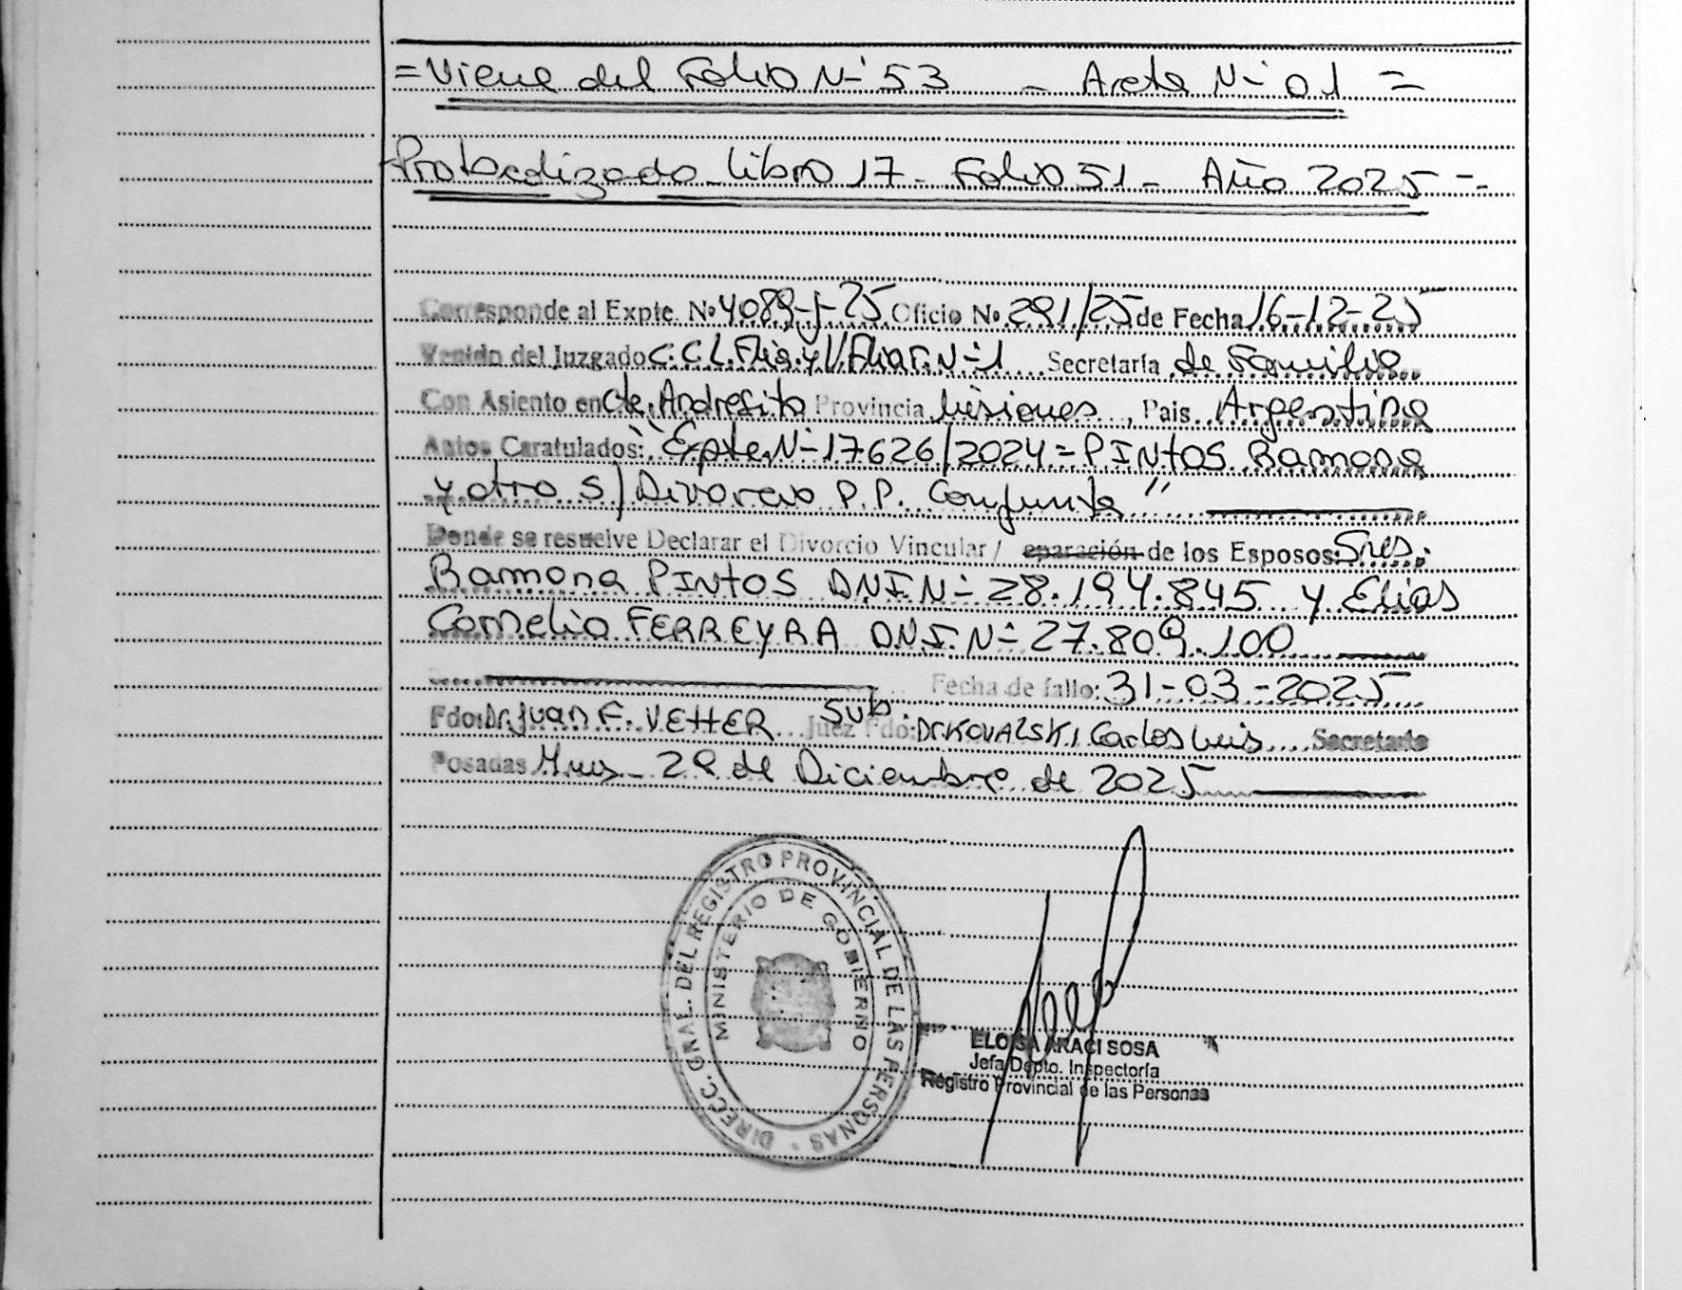 =Viene del Folio N-º 53 - Acta N-º 01 =
-Protocolizado Libro 17- Folio 51 - Año 2025 -
Corresponde al Expte. Nº 4089-J-25 Oficio No. 291/25 de Fecha 16-12-25
Venido del Juzgado C.C.L. Flia. y V. Fliar. N-º 1 Secretaría de Familia
Con Asiento en Cte. Andresito Provincia Misiones, Pais. Argentina
Autos Caratulados: "Expte. N-º 17626/2024 = PINTOS Ramona
y otro S/ Divorcio P.P. Conjunta"
Donde se resuelve Declarar el Divorcio Vincular / eparación de los Esposos: Sres.
Ramona PINTOS DNI N-º 28.194.845 y Elias
Cornelio FERREYRA D.N.I. N-º 27.809.100
Fecha de fallo: 31-03-2025
Fdo: Dr. Juan F. VETTER Juez Fdo: Dr. KOVALSKI Carlos Luis Sub. Secretario
Posadas Mnes- 29 de Diciembre de 2025
DIRECC. GRAL. DEL REGISTRO PROVINCIAL DE LAS PERSONAS
MINISTERIO DE GOBIERNO
ELOISA ARACI SOSA
Jefa Dpto. Inspectoría
Registro Provincial de las Personas